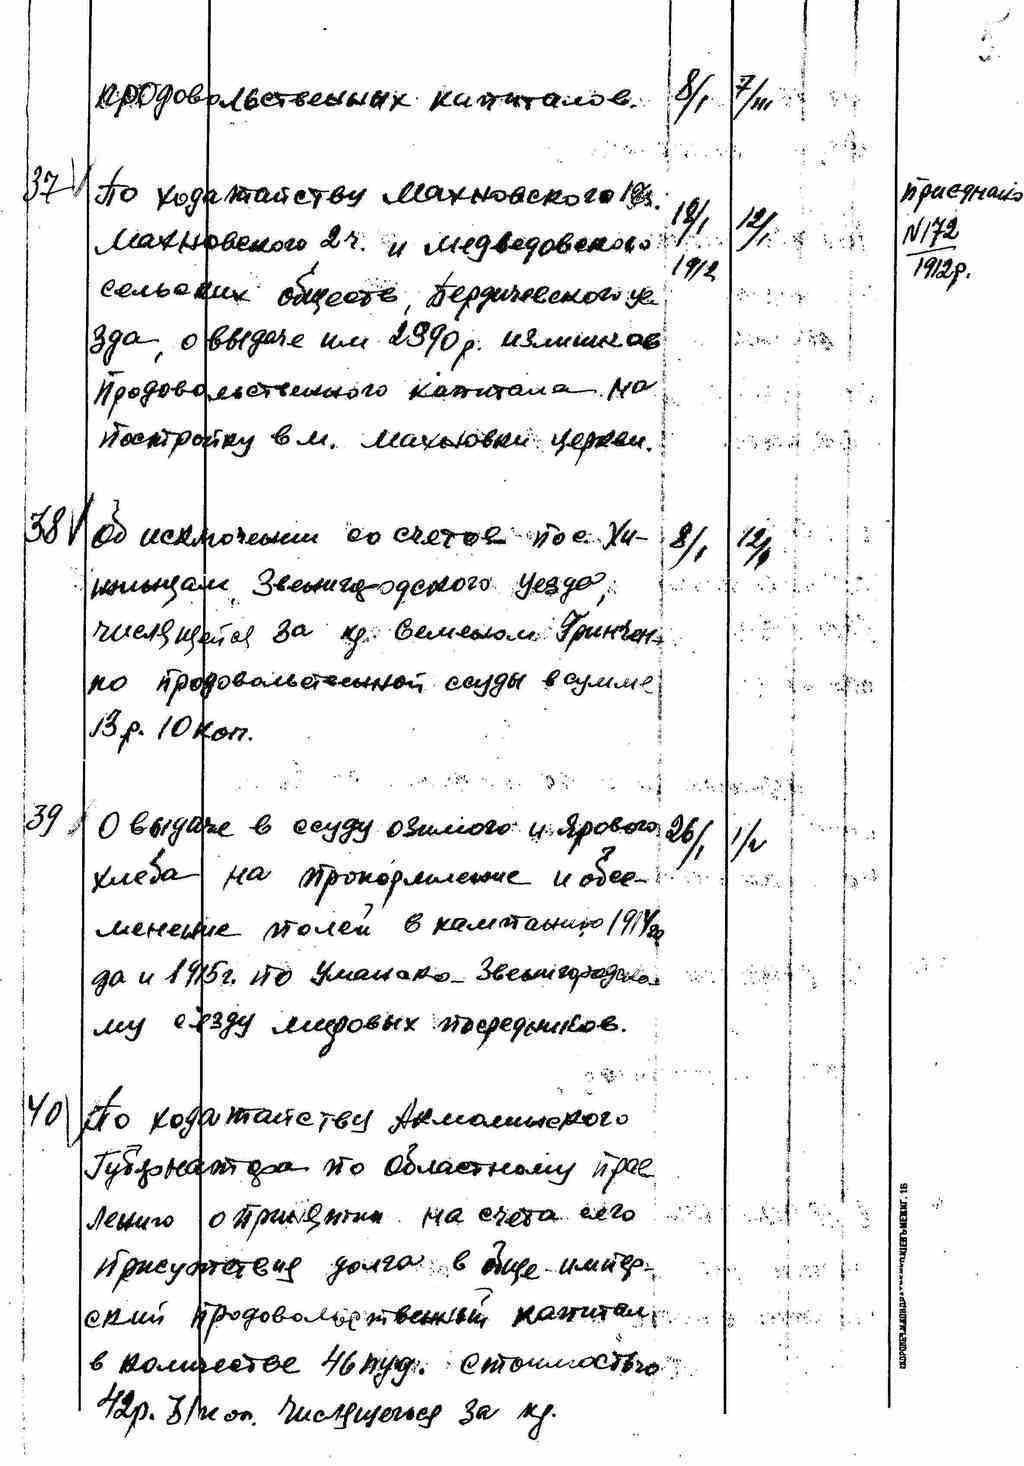 5
продовольственных капиталов. 8/I 7/III
37 По ходатайству Махновского 1ч.
Махновского 2ч. и Медведовского 12/I
сельских обществ, Бердичевского уе-
1912
зда, о выдаче им 2390р. излишков
продовольственного капитала на
постройку в м. Махновки церкви.
присднано
N172
1912р.
38 Об исключении со счетов пос. Хи-
8/I
жинцам, Звенигородского уезда,
числящейся за кр. Семеном Гринчен-
ко продовольственной ссуды в сумме
13р. 10 коп.
39 О выдаче в ссуду озимого и ярового 26/I 1/V
хлеба на прокормление и обсе-
менение полей в кампанию 1914го
да и 1915г. по Уманско-Звенигородско-
му съезду мировых посредников.
40 По ходатайству Акмолинского
Губернатора по областному прав
лению о принятии на счета сего
присутствия долга в обще-импер-
ский продовольственный капитал,
в количестве 46 пуд. стоимостью
42р. 31 коп. числящегося за кр.